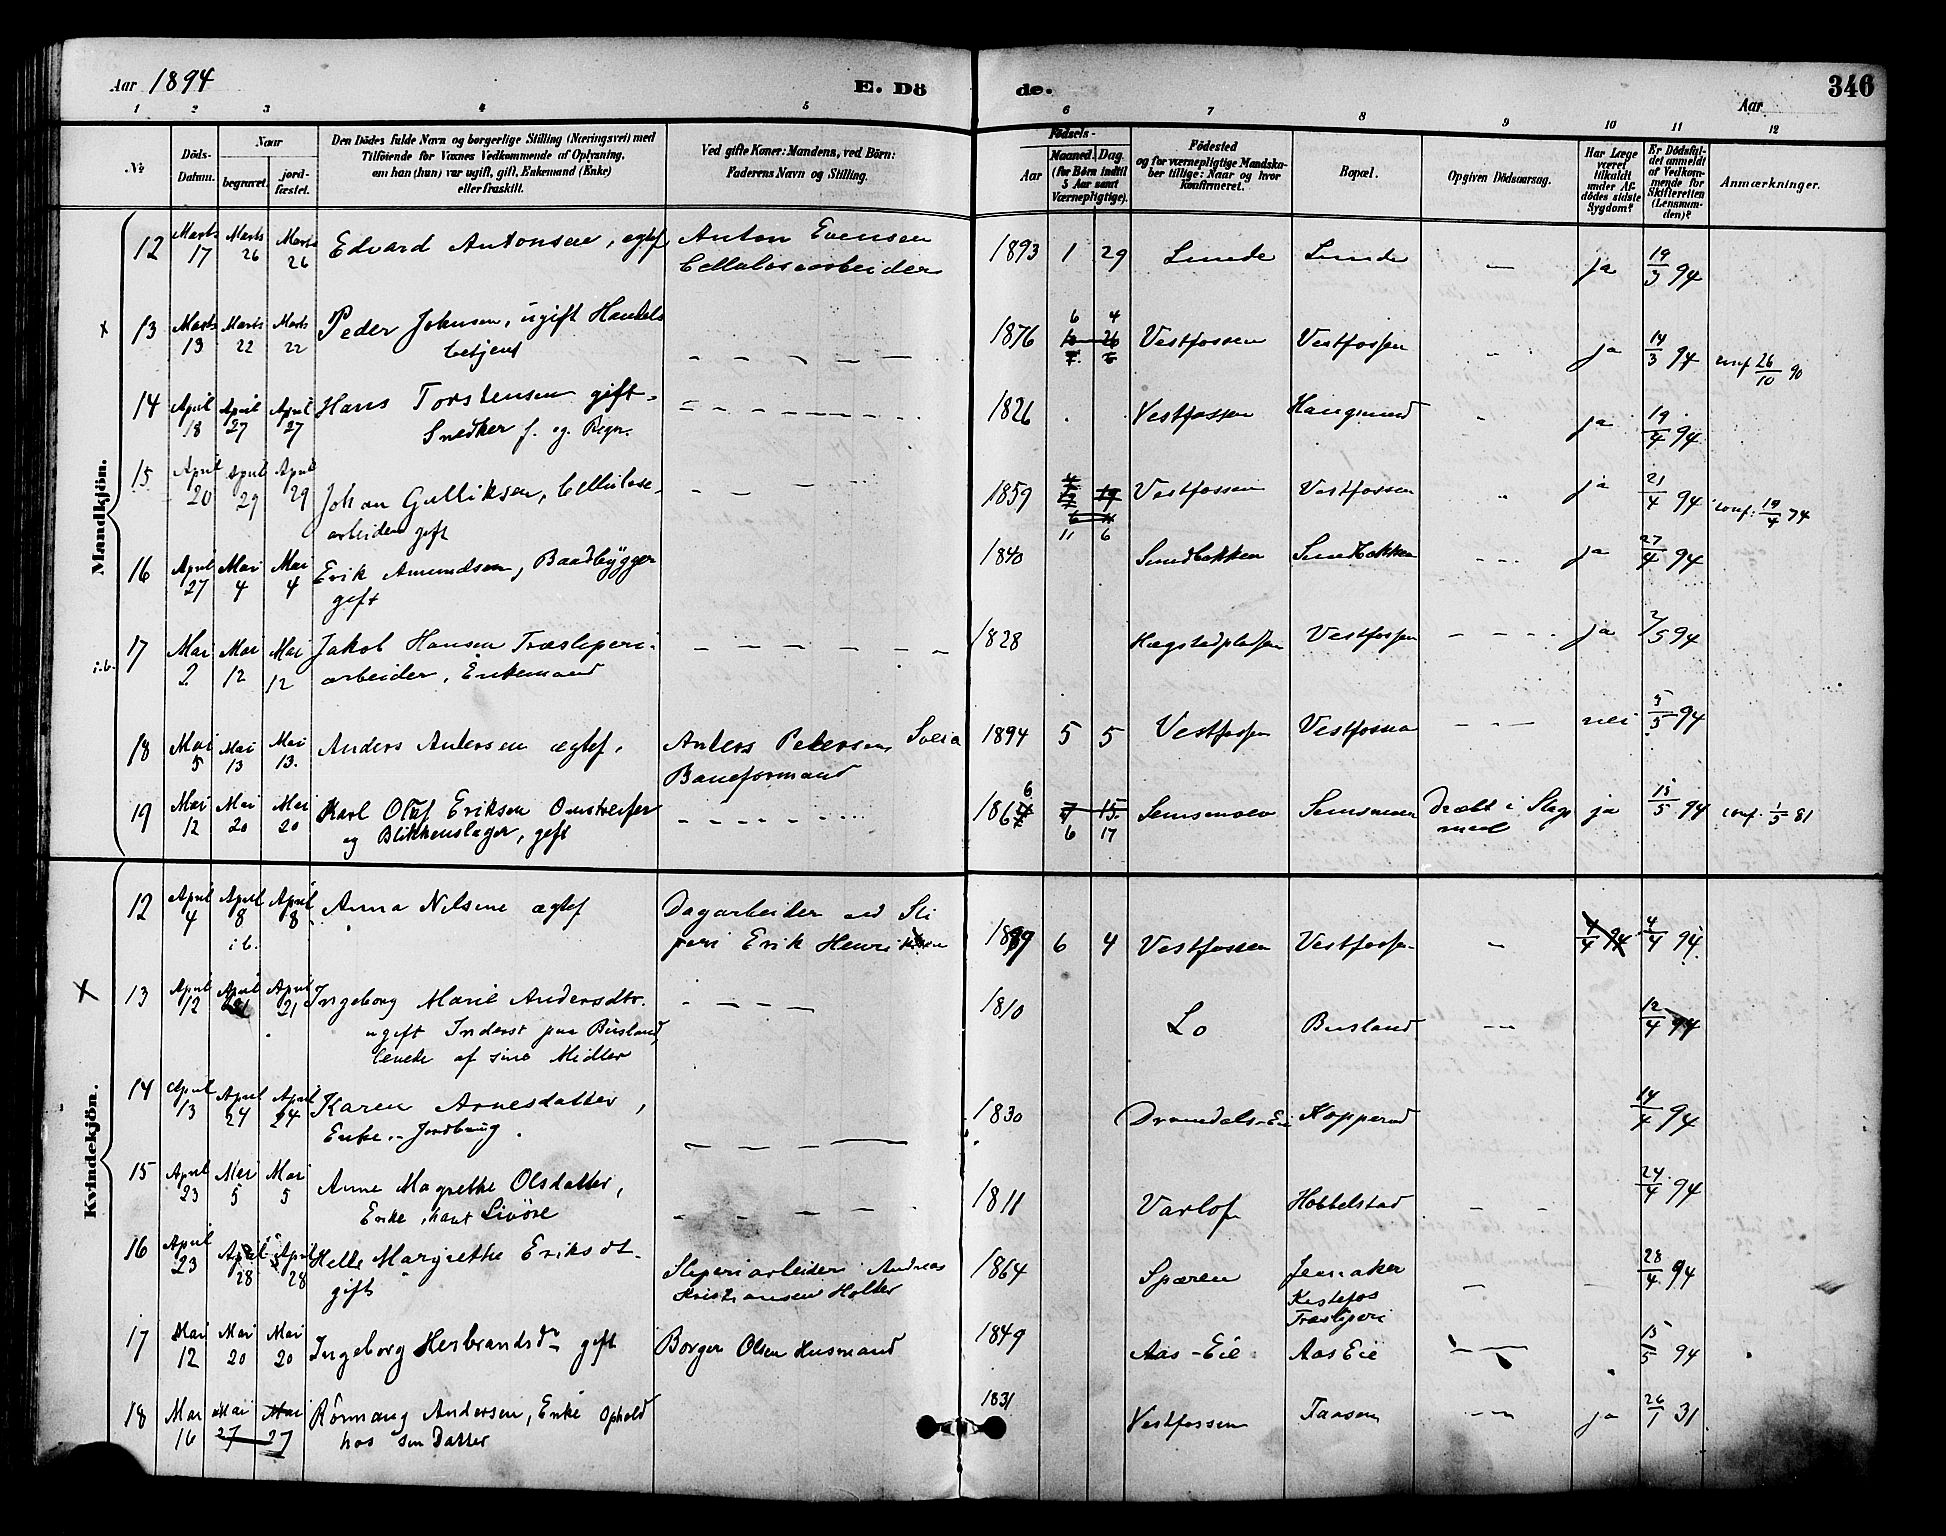 Aar 1894
E. Dö
de.
Aar
346
1 2 3 4 5 6 7 8 9 10 11 12
No
Döds-
Datum.
Naar
begravet.
jord-
fæstet.
Den Dödes fulde Navn og borgerlige Stilling (Næringsvei) med
Tilföiende for Voxnes Vedkommende af Oplysning,
om han (hun) var ugift, gift, Enkemand (Enke)
eller fraskilt.
Ved gifte Koner: Mandens, ved Börn:
Faderens Navn og Stilling.
Födsels-
Aar
Maaned. Dag.
(for Börn indtil
5 Aar samt
Værnepligtige).
Födested
og for værnepligtige Mandska-
ber tillige: Naar og hvor
konfirmeret.
Bopæl.
Opgiven Dödsaarsag.
Har Læge
været
tilkaldt
under Af-
dödes sidste
Sygdom?
Er Dödsfal-
det anmeldt
af Vedkom-
mende for
Skifteretten
(Lensman-
den)?
Anmærkninger.
Mandkjön.
12 Marts 17 Marts 26 Marts 26 Edvard Antonsen, ægtef. Anton Evensen 1893 1 29 Lunde Lunde — ja 19/3 94
Cellulosearbeider
x 13 Marts 13 Marts 22 Marts 22 Peder Johnsen, ugift Handels 1876 6 4 Vestfossen Vestfossen ja 14/3 94 conf 26/10 90
betjent
14 April 18 April 27 April 27 Hans Torstensen gift 1826 Vestfossen Haugsund ja 19/4 94
Snedker f. og Repr.
15 April 20 April 29 April 29 Johan Gulliksen, Cellulose- 1859 11 6 Vestfossen Vestfossen ja 21/4 94 conf: 19/4 74
arbeider gift
16 April 27 Mai 4 Mai 4 Erik Amundsen, Baadbygger 1840 Sundbakken Sundbakken ja 27/4 94
gift
i.b. 17 Mai 2 Mai 12 Mai 12 Jakob Hansen Træsliperi- 1828 Hægstadpladsen Vestfossen ja 2/5 94
arbeider, Enkemand
18 Mai 5 Mai 13 Mai 13. Anders Andersen ægtef. Anders Petersen Svea 1894 5 5 Vestfossen Vestfossen nei 5/5 94
Baneformand
19 Mai 12 Mai 20 Mai 20 Karl Olaf Eriksen Omstreifer 1866 6 17 Semsmoen Semsmoen Dræbt i Slags ja 15/5 94 conf. 1/5 81
og Blikkenslager, gift maal
Kvindekjön.
12 April 4 April 8 April 8 Anna Nilsine ægtef Dagarbeider ved Sli 1889 6 4 Vestfossen Vestfossen — 4/4 94 4/4 94
i b. peri Erik Henriksen
x 13 April 12 April 21 April 21 Ingeborg Marie Andersdtr. 1810 Lo Busland 12/4 94
ugift Inderst paa Busland,
levede af sine Midler
14 April 13 April 24 April 24 Karen Arnesdatter, 1830 Dramdals-Eie Kopperud 14/4 94
Enke - Jordbrug.
15 April 23 Mai 5 Mai 5 Anne Magrethe Olsdatter, 1811 Varlo Hobbelstad 24/4 94
Enke
16 April 23 April 28 April 28 Helle Margrethe Eriksdt. Sliperiarbeider Andreas 1864 Spæren Jernaker 28/4 94
gift Kristiansen Holter Kistefos
Træsliperi
17 Mai 12 Mai 20 Mai 20 Ingeborg Herbrandsdr gift Borger Olsen Husmand 1849 Aas-Eie Aas Eie 15/5 94
18 Mai 16 Mai 27 Mai 27 Andersen, Enke Ophold 1831 Vestfossen ja 26/1 31
hos sin Datter